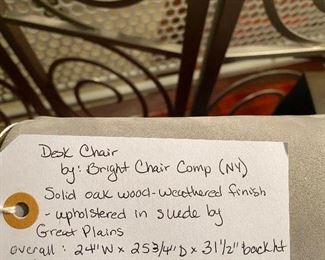 Desk Chair
by: Bright Chair Comp (NY)
Solid oak wood-weathered finish
- upholstered in suede by
Great Plains
overall: 24"W x 25 3/4"D x 31 1/2" back ht